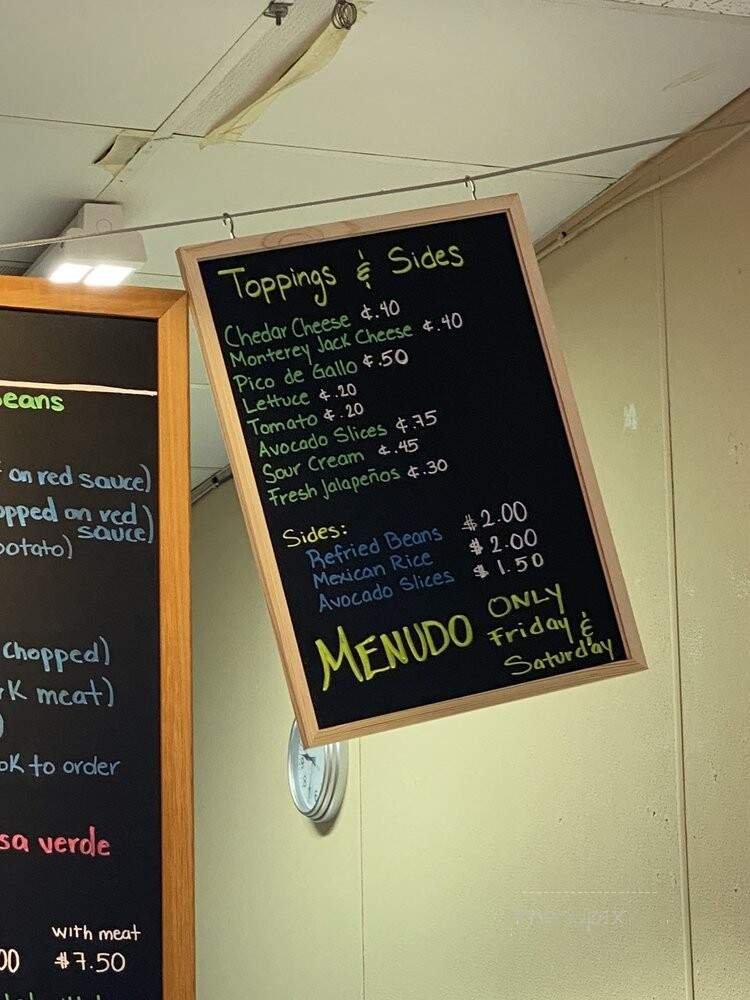 Toppings & Sides
Chedar Cheese ¢.40
Monterey Jack Cheese ¢.40
Pico de Gallo ¢.50
Lettuce ¢.20
Tomato ¢.20
Avocado Slices ¢.75
Sour Cream ¢.45
Fresh Jalapeños ¢.30
Sides:
Refried Beans $2.00
Mexican Rice $2.00
Avocado Slices $1.50
MENUDO ONLY
Friday &
Saturday
eans
on red sauce)
opped on red
sauce)
potato)
chopped)
K meat)
)
ok to order
sa verde
with meat
00 $7.50
menupix